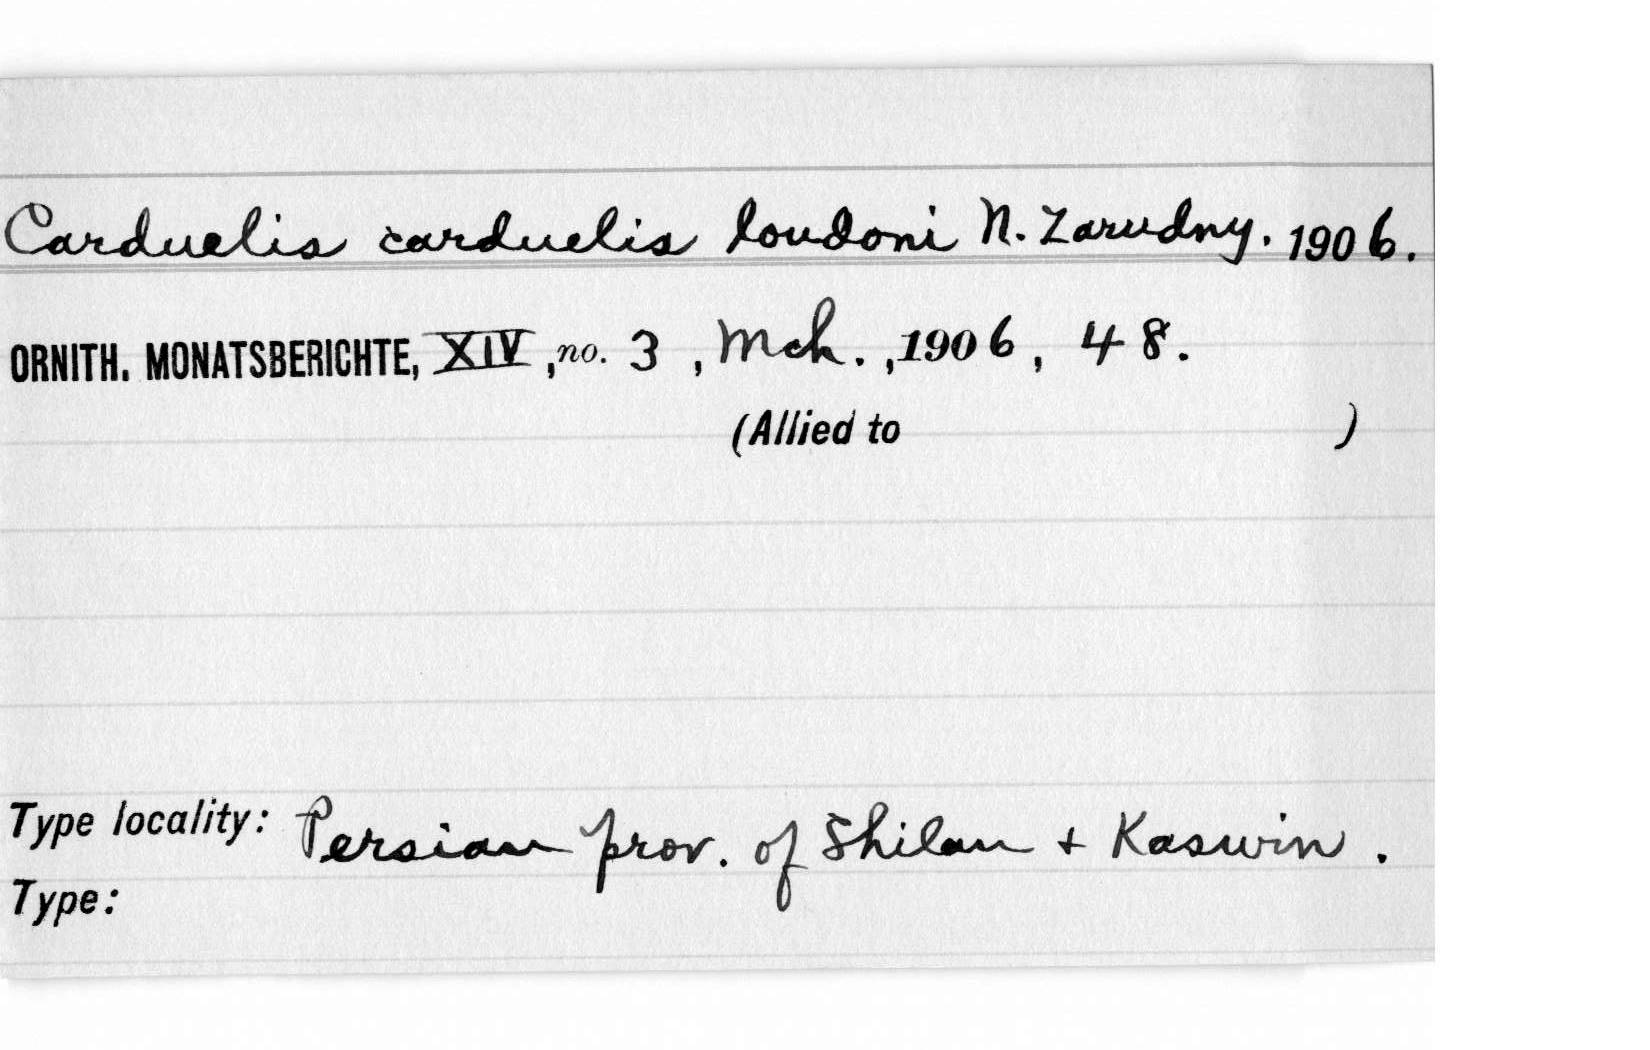 Carduelis carduelis loudoni N. Zarudny. 1906.
ORNITH. MONATSBERICHTE, XIV, no. 3, Mch., 1906, 48.
(Allied to )
Type locality: Persian prov. of Shilan + Kaswin.
Type: